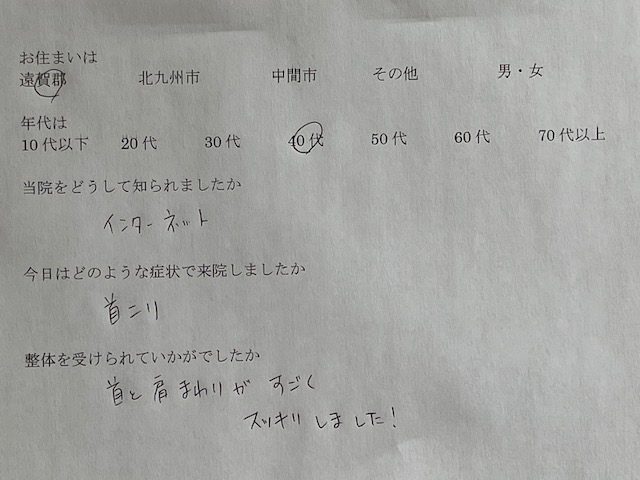 お住まいは
遠賀郡 北九州市 中間市 その他 男・女
年代は
10代以下 20代 30代 40代 50代 60代 70代以上
当院をどうして知られましたか
インターネット
今日はどのような症状で来院しましたか
首こり
整体を受けられていかがでしたか
首と肩まわりがすごく
スッキリしました!